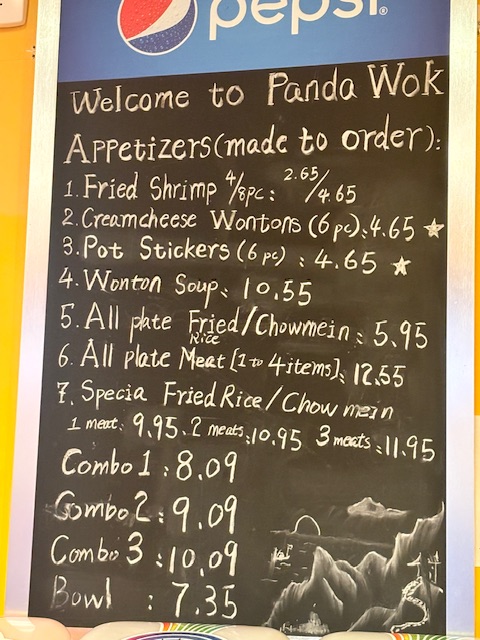 pepsi®
Welcome to Panda Wok
Appetizers(made to order):
1. Fried Shrimp 4/8pc: 2.65/4.65
2. Creamcheese Wontons (6 pc):4.65 ★
3. Pot Stickers (6 pc) : 4.65 ★
4. Wonton Soup: 10.55
5. All plate Fried/Chowmein: 5.95
Rice
6. All plate Meat [1 to 4 items]: 12.55
7. Specia Fried Rice/Chow mein
1 meat: 9.95. 2 meats:10.95 3 meats:11.95
Combo 1 : 8.09
Combo 2 : 9.09
Combo 3 : 10.09
Bowl : 7.35